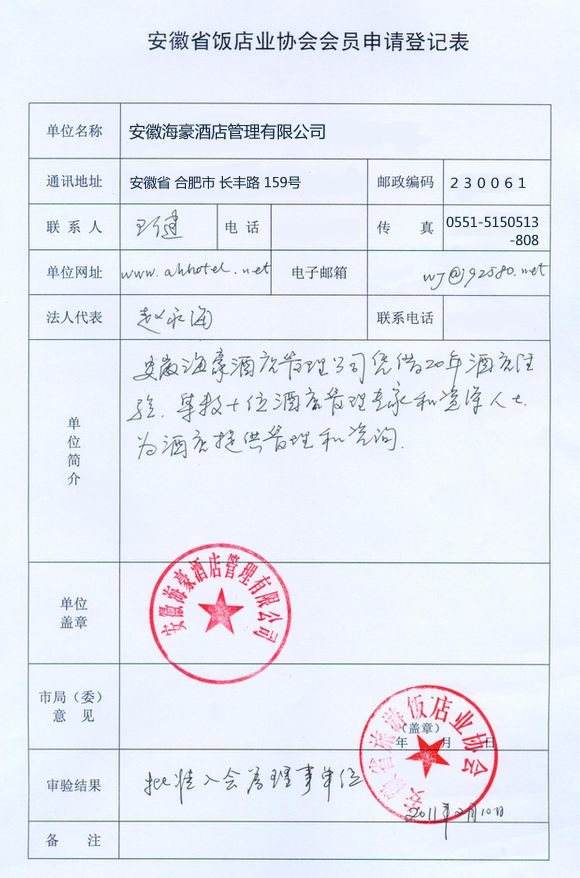 安徽省饭店业协会会员申请登记表
单位名称 安徽海豪酒店管理有限公司
通讯地址 安徽省 合肥市 长丰路 159号 邮政编码 230061
联系人 电话 传真 0551-5150513
-808
单位网址 www.ahhotel.net 电子邮箱 wj@92580.net
法人代表 赵永海 联系电话
单位简介
安徽海豪酒店管理公司凭借20年酒店经
验.集数十位酒店管理专家和资深人士.
为酒店提供管理和咨询.
单位
盖章
安徽海豪酒店管理有限公司
市局（委）
意见
（盖章）
年 月 日
安徽省旅游饭店业协会
审验结果 批准入会为理事单位
2011年2月10日
备注